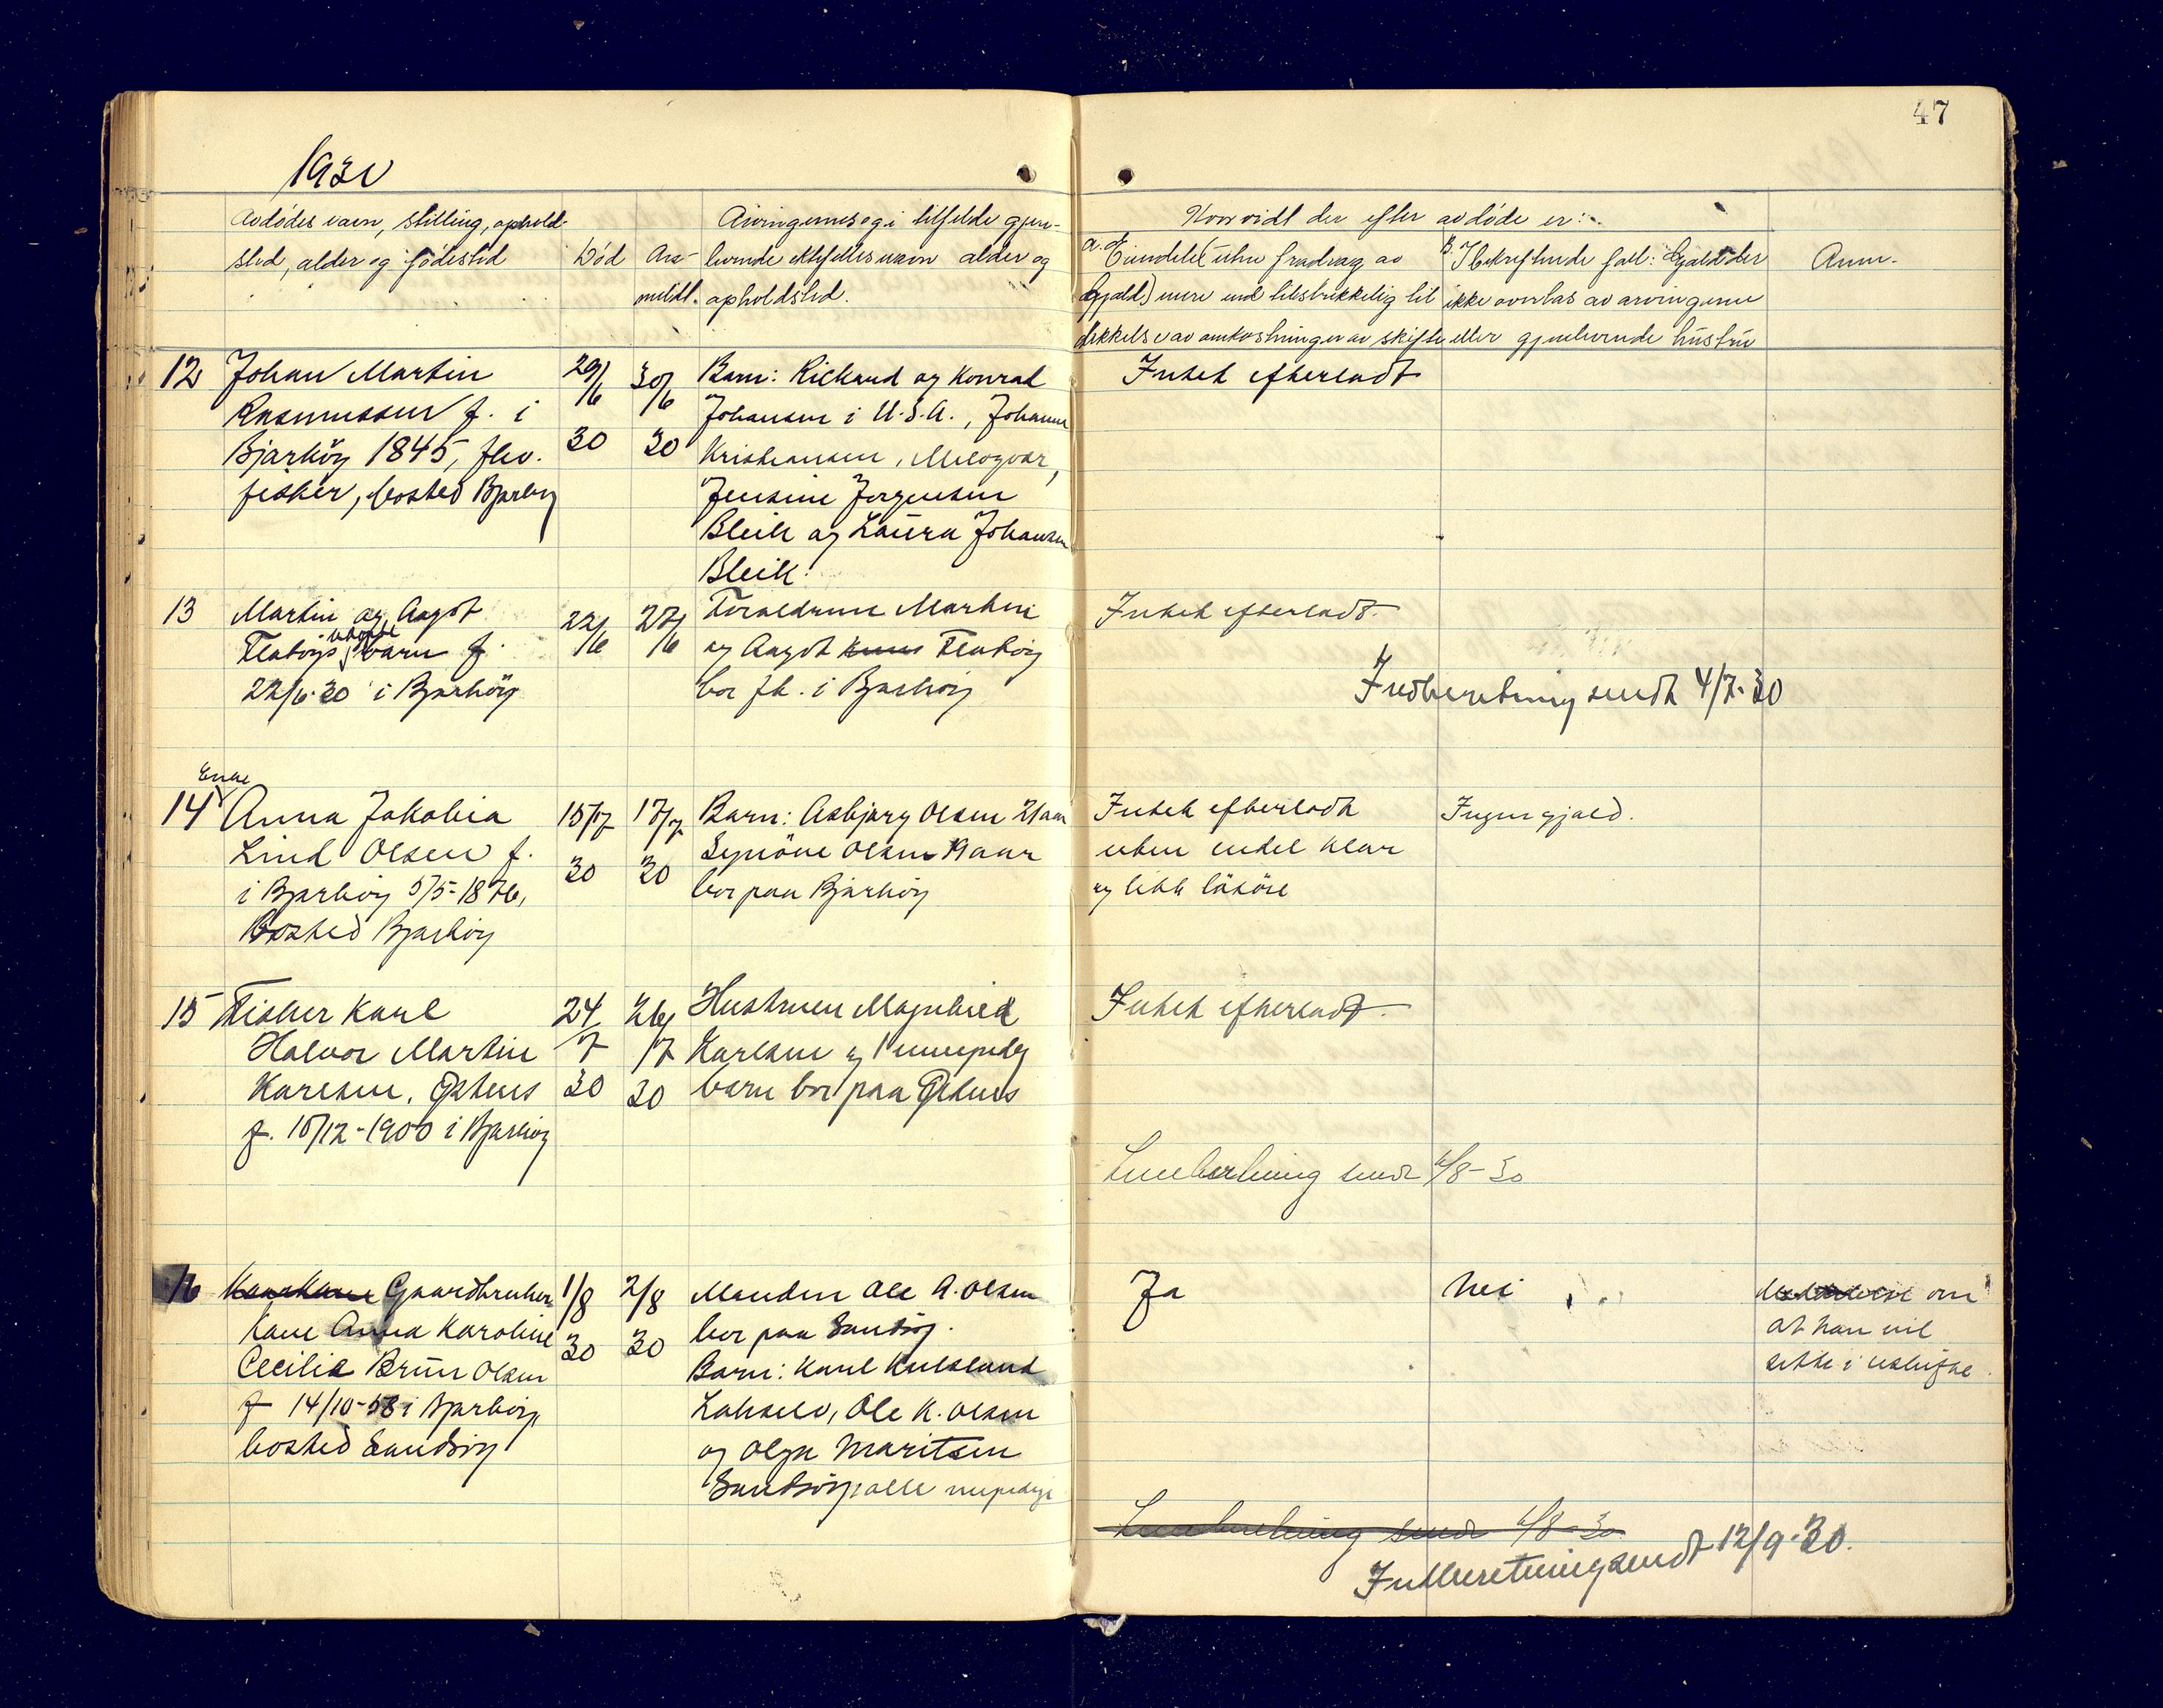 47
1930
Avdødes navn, stilling, ophold-
sted, alder og fødested
Død
An-
meldt.
Arvingernes og i tilfelde gjen-
levende ektefelles navn alder og
opholdsted.
Hvorvidt der efter avdøde er:
a. Eiendele (uten fradrag av
Gjæld) mere end tilstrekkelig til
dekkelse av omkostninger av skifte
B. I bekreftende fall: Gjæld der
ikke overtas av arvingerne
eller gjenlevende hustru
Anm.
12 Johan Martin
Rasmussen f. i
Bjarkøy 1845, fhv.
fisker, bosted Bjarkøy
29/6
30
30/6
30
Barn: Rickard og Konrad
Johansen i U.S.A., Johanne
Kristiansen, Melogvær,
Jensine Jørgensen
Bleik og Laura Johansen
Bleik.
Intet efterladt
13 Martin og Aagot
Flatøys udøpte barn f.
22/6-30 i Bjarkøy
22/6
27/6
Foreldrene Martin
og Aagot Flatøy
bor fh. i Bjarkøy
Intet efterladt.
Indberetning sendt 4/7-30
Enke
14 Anna Jakobia
Lind Olsen f.
i Bjarkøy 5/5-1876,
Bosted Bjarkøy
15/7
30
17/7
30
Barn: Asbjørg Olsen 21 aar
Synøve Olsen 19 aar
bor paa Bjarkøy
Intet efterladt
uten endel klær
og litt løsøre
Ingen gjæld.
15 Fisker Karl
Halvor Martin
Karlsen, Østnes
f. 15/12-1900 i Bjarkøy
24/7
30
26/7
30
Hustruen Magnhild
Karlsen og 1 umyndig
barn bor paa Østnes
Intet efterladt.
Innberetning sendt 6/8-30
16 Gaardbruker
kone Anna Karoline
Cecilie Brun Olsen
f 14/10-58 i Bjarkøy,
bosted Sandsøy
1/8
30
2/8
30
Manden Ole A. Olsen
bor paa Sandsøy.
Barn: Karl Kulseland
Lakselv, Ole K. Olsen
og Olga Maritsen
Sandsøy alle myndige
Ja
Nei
om
at han vil
sitte i uskifte.
Innberetning sendt 6/8-30
Indberetning sendt 12/9-30.